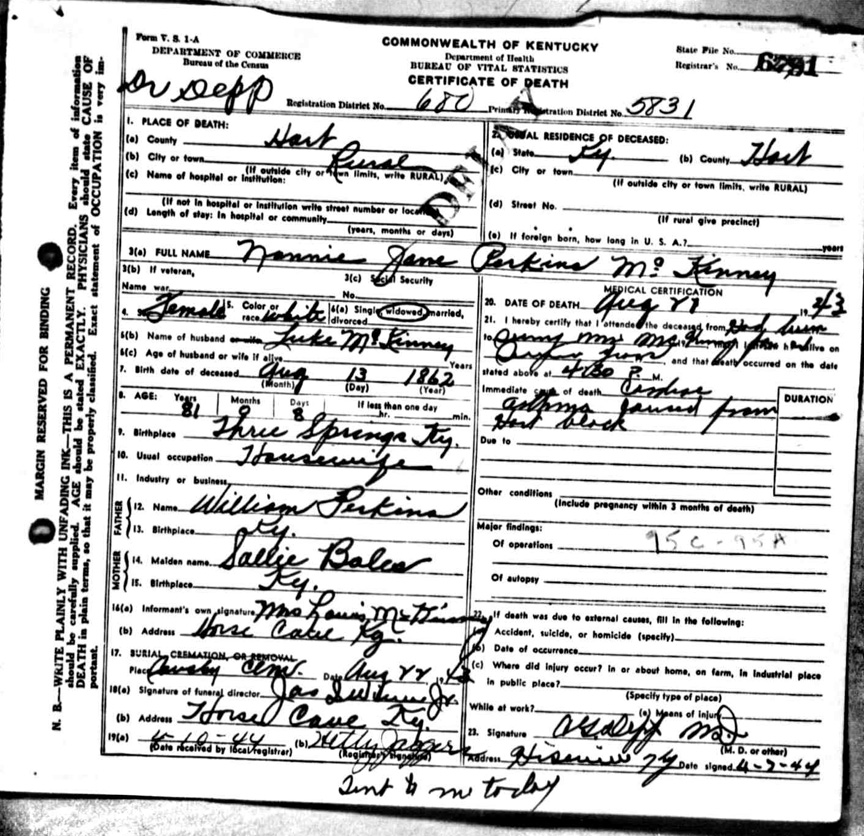 Form V. S. 1-A
DEPARTMENT OF COMMERCE
Bureau of the Census
COMMONWEALTH OF KENTUCKY
Department of Health
BUREAU OF VITAL STATISTICS
CERTIFICATE OF DEATH
State File No.
Registrar's No.
Dr Depp
Registration District No. 680 Primary Registration District No. 5831
1. PLACE OF DEATH:
(a) County Hart
(b) City or town Rural
(If outside city or town limits, write RURAL)
(c) Name of hospital or institution:
(If not in hospital or institution write street number or location)
(d) Length of stay: In hospital or community
(years, months or days)
2. USUAL RESIDENCE OF DECEASED:
(a) State Ky. (b) County Hart
(c) City or town
(If outside city or town limits, write RURAL)
(d) Street No.
(If rural give precinct)
(e) If foreign born, how long in U. S. A.? years
3(a) FULL NAME Nannie Jane Perkins McKinney
3(b) If veteran,
Name war
3(c) Social Security
No.
4. Sex Female 5. Color or race white 6(a) Single, widowed, married, divorced
6(b) Name of husband or wife Luke McKinney
6(c) Age of husband or wife if alive Years
7. Birth date of deceased Aug 13 1862
(Month) (Day) (Year)
8. AGE: Years Months Days If less than one day
81 0 8 hr. min.
9. Birthplace Three Springs Ky.
10. Usual occupation Housewife
11. Industry or business
FATHER
12. Name William Perkins
13. Birthplace Ky.
MOTHER
14. Maiden name Sallie Bales
15. Birthplace Ky.
16(a) Informant's own signature Mrs Louis McKinney
(b) Address Horse Cave Ky.
17. BURIAL, CREMATION, OR REMOVAL
Place Cem. Date Aug 22 1943
18(a) Signature of funeral director Jas
(b) Address Horse Cave Ky.
19(a) 4-10-44 (b) Hetty Jaggers
(Date received by local registrar) (Registrar's signature)
MEDICAL CERTIFICATION
20. DATE OF DEATH Aug 21 1943
21. I hereby certify that I attended the deceased from
to alive on
, and that death occurred on the date
stated above at 4:30 P. M.
Immediate cause of death Cardiac
asthma caused from
Hart block
DURATION
Due to
Other conditions
(Include pregnancy within 3 months of death)
Major findings:
Of operations 95C-95A
Of autopsy
22. If death was due to external causes, fill in the following:
(a) Accident, suicide, or homicide (specify)
(b) Date of occurrence
(c) Where did injury occur? In or about home, on farm, in industrial place
in public place?
(Specify type of place)
While at work? (e) Means of injury
23. Signature Depp MD
(M. D. or other)
Address Hiseville Ky Date signed 4-7-44
Sent to me today
MARGIN RESERVED FOR BINDING
N. B.—WRITE PLAINLY WITH UNFADING INK—THIS IS A PERMANENT RECORD. Every item of information
should be carefully supplied. AGE should be stated EXACTLY. PHYSICIANS should state CAUSE OF
DEATH in plain terms, so that it may be properly classified. Exact statement of OCCUPATION is very im-
portant.